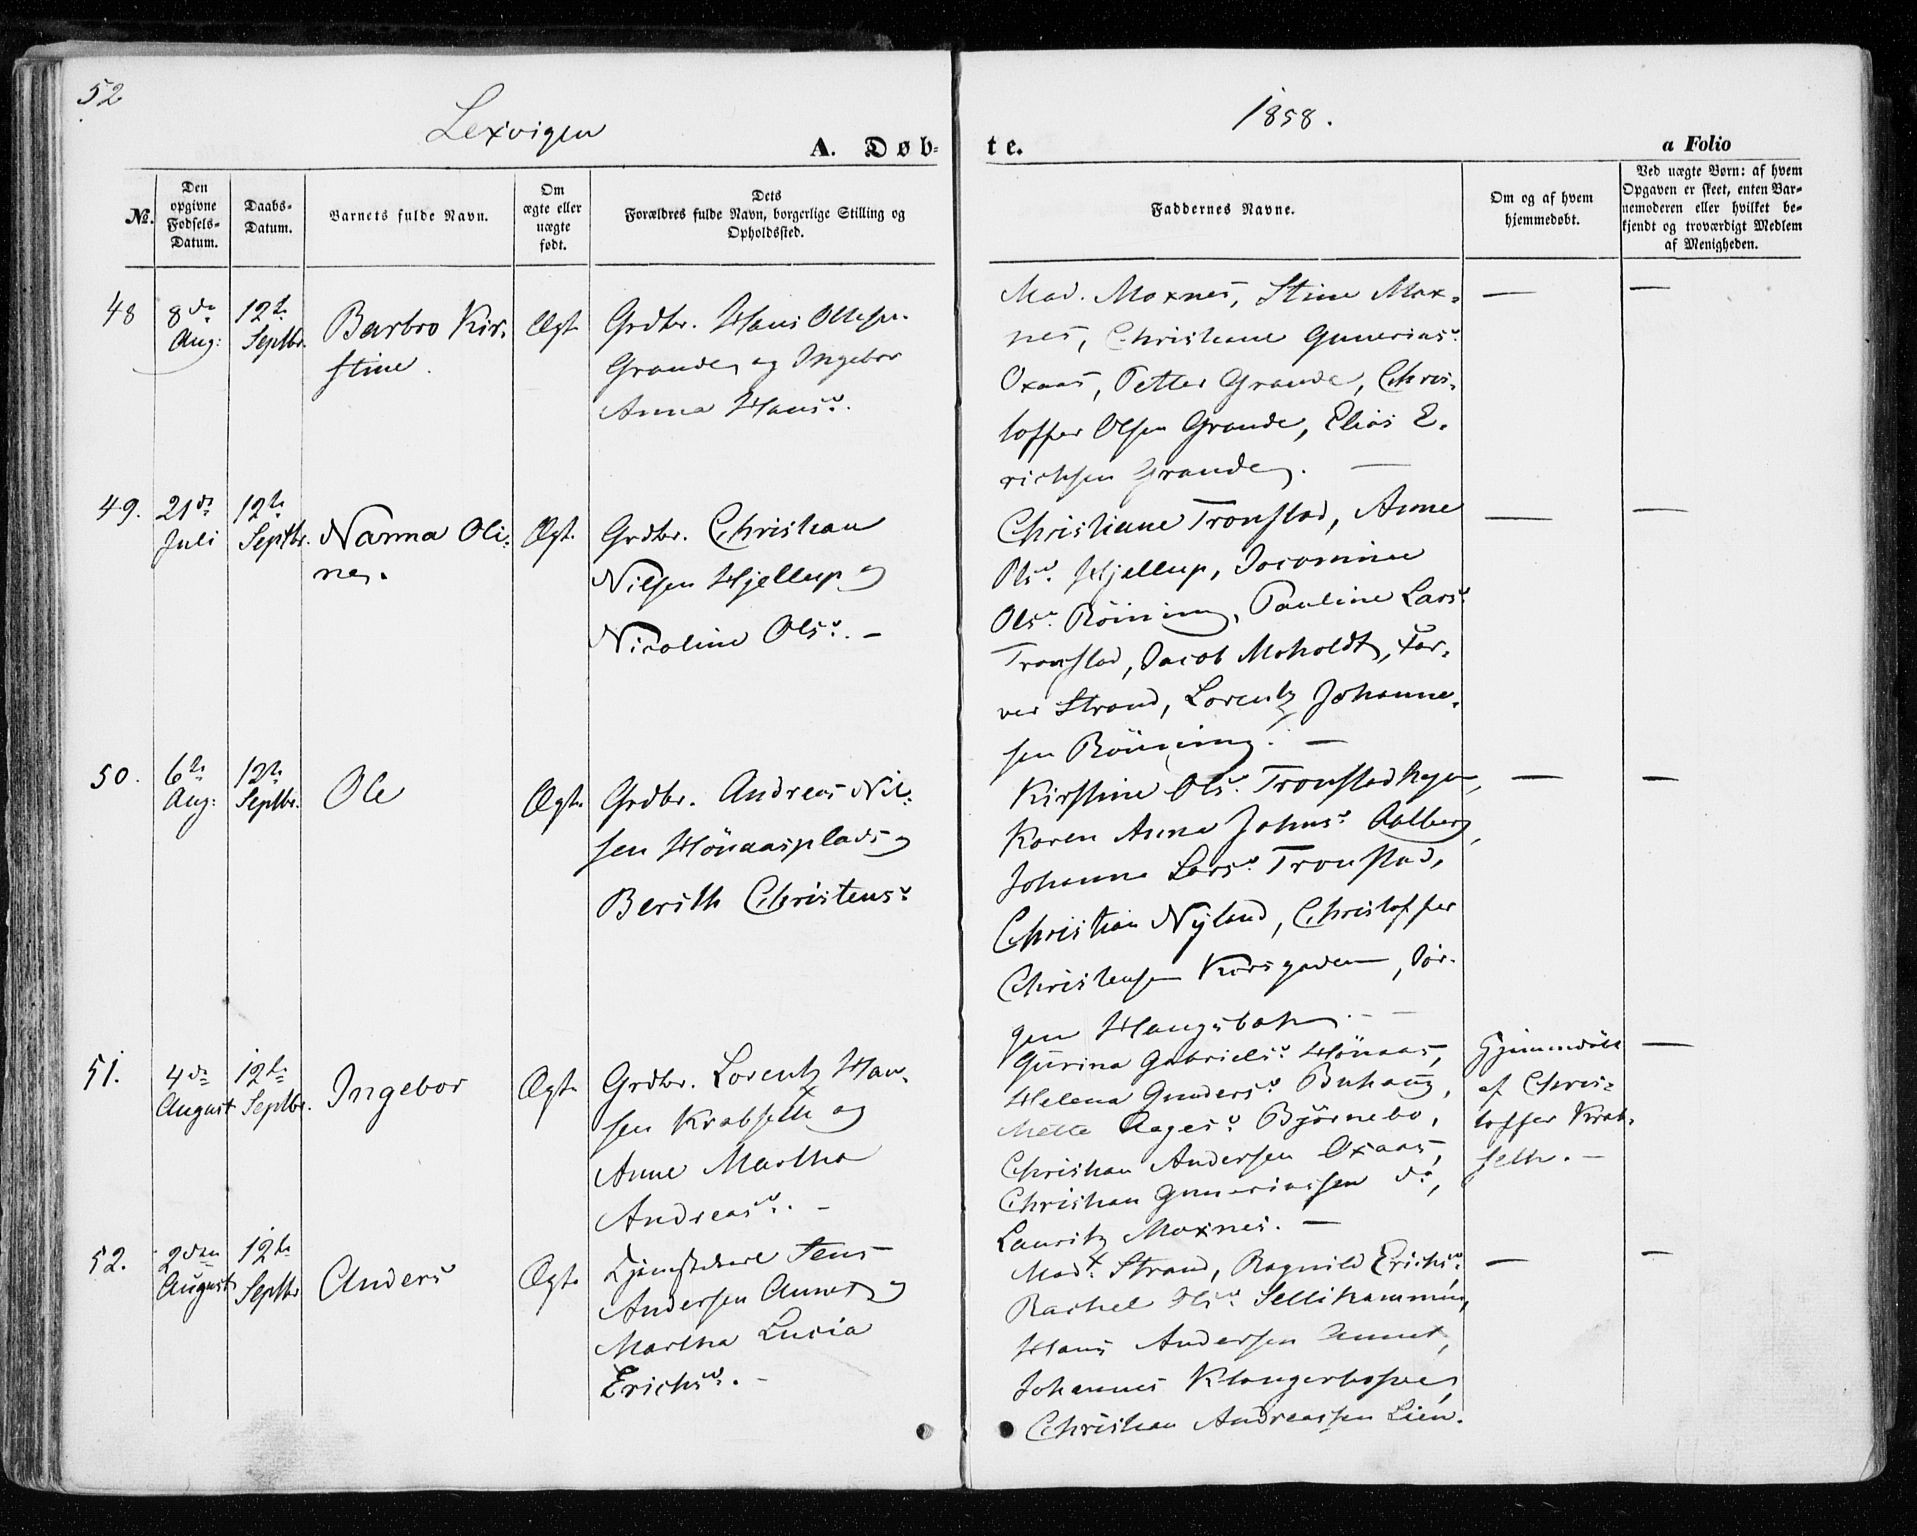 52
Lexvigen
1858.
A. Døb-
te.
a Folio
No.
Den
opgivne
Fødsels-
Datum.
Daabs-
Datum.
Barnets fulde Navn.
Om
ægte eller
uægte
født.
Dets
Forældres fulde Navn, borgerlige Stilling og
Opholdssted.
Faddernes Navne.
Om og af hvem
hjemmedøbt.
Ved uægte Børn: af hvem
Opgaven er skeet, enten Bar-
nemoderen eller hvilket be-
kjendt og troværdigt Medlem
af Menigheden.
48
8de
Aug:
12te
Septbr.
Barbro Kir-
stine.
Ægt.
Grdbr. Hans Ollesen
Grande og Ingebor
Anna Hansd.
Mad. Moxnes, Stine Mox-
nes, Christiane Guneriasd.
Oxaas, Petter Grande, Chris-
toffer Olsen Grande, Elias E-
richsen Grande. —
—
—
49.
21de
Juli
12te
Septbr.
Nanna Oli-
ne.
Ægt.
Grdbr. Christian
Nilsen Hjellup og
Nicoline Olsd. —
Christiane Tronstad, Anne
Olsd. Hjellup, Jocomine
Olsd. Röining, Pauline Larsd.
Tronstad, Jacob Moholdt, Far-
ver Strand, Lorentz Johanne-
sen Röining. —
—
—
50.
6te
Aug:
12te
Septbr.
Ole
Ægt.
Grdbr. Andreas Nil-
sen Hönaasplads og
Berith Christensd.
Kirstine Olsd. Tronstadhagen,
Karen Anna Johnsd. Aalberg,
Johanna Larsd. Tronstad,
Christian Nyland, Christoffer
Christensen Korsgaden, Jör-
gen Haugsbakn. —
—
—
51.
4de
August
12te
Septbr.
Ingebor
Ægt.
Grdbr. Lorentz Han-
sen Krabseth og
Anne Martha
Andreasd. —
Gurina Gabrielsd. Hönaas,
Helena Gundersd. Buhaug,
Mette Aagesd. Björnebo,
Christian Andersen Oxaas,
Christian Gunneriussen do,
Lauritz Moxnes. —
Hjemmedöbt
af Chris-
toffer Krab-
seth. —
—
52.
2den
August
12te
Septbr
Anders
Ægt.
Jens
Andersen Aunet og
Martha Lucia
Erichsd. —
Madt. Strand, Ragnild Erichsd.
Rachel Olsd. Sellikammen,
Hans Andersen Aunet,
Johannes
Christian Andreassen Lien.
—
—